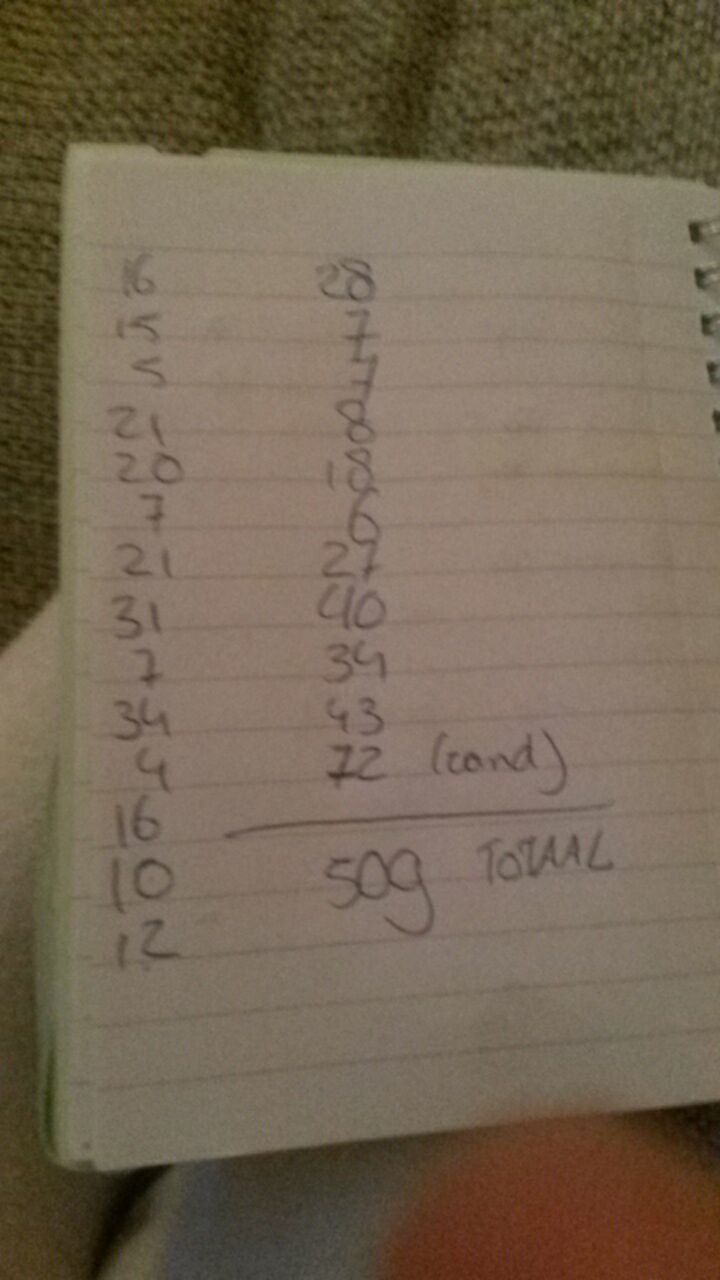 16
15
5
21
20
7
21
31
7
34
4
16
10
12
28
7
7
8
18
6
27
40
34
43
72 (cand)
509 TOTAAL